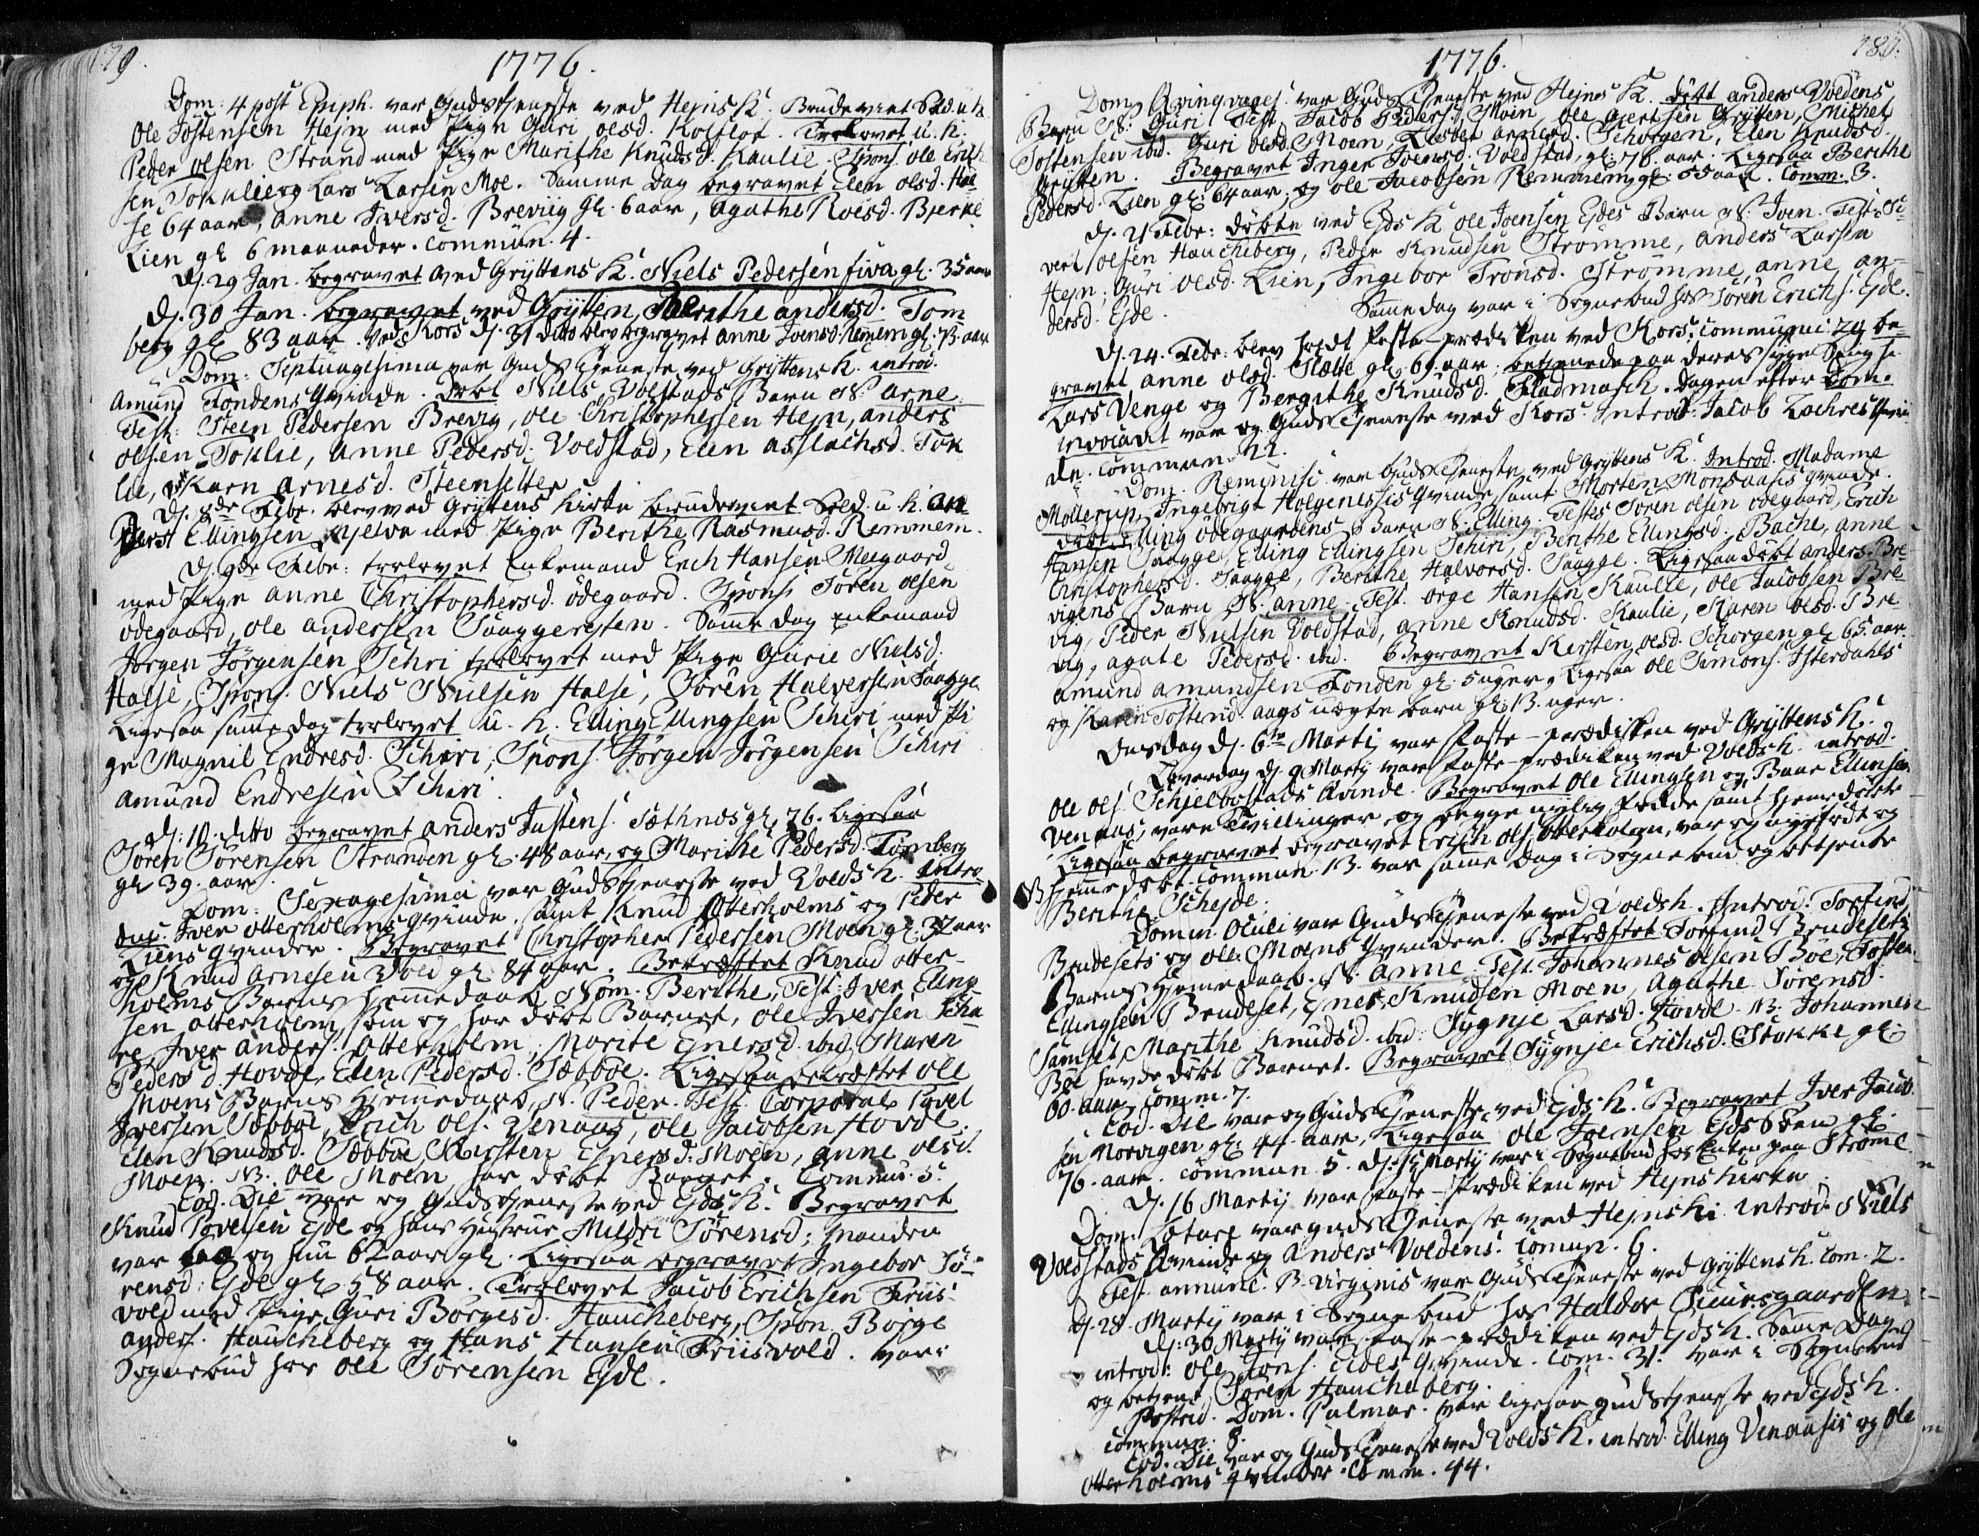 179.
1776.
Dom: 4 post Epiph. var Gudstieneste ved Hejns K. Brudeviet Sold. u. k.
Ole Tostensen Hejn med Pige Guri olsd. Kolflot. Trolovet u. k.
Peder olsen Strand med Pige Marithe Knudsd. Kaulie. Spons. ole Erich
sen Toklie og Lars Larsen Moe. Samme dag begravet Elen olsd. Hal
se 64 aar, anne Iversd. Breviig gl. 6 aar, Agathe Roisd. Bierke
Lien gl 6 maaneder. Commun. 4.
Dj 29 Jan. begravet ved Gryttens K. Niels Pedersen fiva gl. 35 aar
Dj. 30 Jan. begravet ved Grytten, Berithe andersd. Tom
berg gl 83 aar. ved Kors dj. 31 dito blev begravet anne Ivensd. Remem gl. 73 aar
Dom: Septuagesima var Gudstieneste ved Gryttens K. introd.
Amund Fondens Qvinde. Døbt Niels Volstads Barn N. Arne
Test: Steen Pedersen Brevig, ole Christophersen Hejn, anders
olsen Toklie, anne Pedersd. Voldstad, Elen aslachsd. Tok
lie, Karn arnesd. Steensetter
Dj. 8de Febr. blev ved Gryttens Kirke brudeviet Sold. u. k. An
ders Ellingsen Hielva med Pige Berithe Rasmusd. Remmem.
Dj. 9de Febr: trolovet Enkemand Erich Hansen Meegaard
med Pige anne Christophersd. ödegaard. Spons. Søren olsen
ödegaard, ole andersen Saaggerejten. Same dag enkemand
Jørgen Jørgensen Schri trolovet med Pige Gurie Nielsd.
Halse, Spons. Niels Nielsen Halse, Søren Halversen Saagge
Ligesaa samme dag trolovet u. k. Elling Ellingsen Schri med Pi
ge Magnil Endresd. Schri, Spons. Jørgen Jørgensen Schri
amund Endresen Schri.
Dj: 10. ditto begravet anders Justens. Sæthnæs gl. 76. Ligesaa
Søren Sørensen Stranden gl. 48 aar, og Marithe Pedersd. Tomberg
gl 39. aar.
Dom: Sexagesima var Gudstieneste ved Volds K. intro
duc. Iver otterholms Qvinde, samt Knud Otterholms og Peder
Liens Qvinder. Begravet Christopher Pedersen Moen gl. 32 aar
og Knud Arnesen Vold gl. 84 aar. Bekræftet Knud otter-
holms Barns hiemedaab, Nom. Berithe, Test: Iver Elling
sen otterholm som og har døbt Barnet, ole Iversen Scha
re Iver anders. Otterholm, Marite Ejnersd. ibid. Maren
Peders d. Hovde, Elen Pedersd. Sæbböe. Ligesaa bekræftet ole
Moens Barns hiemedaab, N. Peder. Test. Corporal Povel
Iversen Sæbböe, Erich ols. Venaas, ole Jacobsen Hovde.
Elen Knudsd. Sæbböe Kirsten Ejnersd. Moen, anne olsd.
Moen. NB. ole Moen har døbt Barnet. Commun. 5.
Eod. Die var og Gudstieneste ved Eds K. Begravet
Knud Povelsen Ejde og hans Hustrue Mildri Sørensd; Manden
var og hun 62 aar gl. Ligesaa begravet Ingebor Sø-
rensd: Ejde gl 58 aar. Trolovet Jacob Erichsen Friis
vold med Pige Guri Borgesd. Haucheberg, Spon. Børge
anders. Haucheberg og Hans Hansen Friisvold. var i
Sognebud hos ole Sørensen Ejde.
180.
1776.
Dom. Qvinqvages. var Gudstieneste ved Hejns K. døbt anders Voldens
Barn N: Guri Test. Jacob Peders. Moen, ole Giertsen Grytten, Michel
Tostensen ibd. Guri olsd. Moen, Lisbet arnesd. Schorgen, Elen Knudsd.
Grytten. Begravet Inger Ivensd. Voldstad, gl. 76. aar. Ligesaa Berithe
Pedersd. Lien gl. 64 aar, og ole Jacobsen Remmem gl. 55 aar. Comm. 3.
Dj. 21 Febr: døbte ved Eds K ole Joensen Ejdes Barn N. Iven. Test. Si
vert olsen Haucheberg, Peder Knudsen Strømme, anders Larsen
Hejn, Guri olsd. Lien, Ingebor Tronsd. Strømme, anne an-
dersd. Ejde. Same dag var i Sognebud hos Søren Erichs. Ejde.
Dj. 24. Febr: blev holdt faste-prædiken ved Kors. communi: 29 be-
gravet anne olsd. Slætte gl 69. aar; betienede paa deres syge Seng
Lars Venge og Bergithe Knudsd. Fladmarch. Dagen efter Dom.
invocavit var og Gudstieneste ved Kors Introd: Jacob Lochres Qvin
de. Commun. 22.
Dom. Reminisc. var Gudstieneste ved Gryttens K. Introd. Madame
Møllerup, Ingebrigt Holgenessis Qvinde samt Morten Monsaasis qvinde.
døbt Elling ödegaardens Barn N. Elling. Testes Søren olsen ödegaard, Erich
Hansen Saagge, Elling Ellingsen Schiri, Berithe Ellingsd. Bache, anne
Christophersd. Saagge, Berithe Halvorsd. Saagge. Ligesaa døbt anders Bre
vigens Barn N. anne. Test. orge Hansen Kaulie, ole Jacobsen Bre
vig, Peder Nielsen Voldstad, anne Knudsd. Kaulie, Karen olsd. Bre
vig, agate Pedersd. ibid. Begravet Kirsten olsd. Schorgen gl 65. aar.
amund amundsen Fonden gl. 5 uger, Ligesaa ole Simons. Isterdahls
og Karen Tostend. aags uægte barn gl. 13. uger.
Onsdag dj. 6te Martij var faste-prædiken ved Gryttens K.
Løverdag dj. 9 Martij var faste-prædiken ved Volds K. introd.
ole ols. Schjelbostads Qvinde. Begravet ole Ellingsen og Baar Ellingsen
Venaas, vare Tvillinger, og begge nylig fødde samt hiemedøbte
Ligesaa begravet Erich ols. otterholm, var og nyefødt og
hiemedøbt. Commun. 13. var same dag i Sognebud og betiente
Berithe Schejde.
Domin. Oculi var Gudstieneste ved Volds K. Introd: Torfind
Brudesets og ole Moens Qvinder. Bekræftet Torfind Brudesets
Barns Hiemedaab. N. anne. Test. Johannes olsen Böe, Tosten
Ellingsen Brudeset, Ejner Knudsen Moen, Agathe Sørensd.
Samset, Marithe Knudsd. ibid: Sygnje Larsd. Hovde. NB. Johannes
Böe havde døbt Barnet. Begravet Sygnje Erichsd. Stokke gl.
60. aar. Comm. 7.
Eod. Die var og Gudstieneste ved Eds K. Begravet Iver Jacob
sen Norvigen gl. 44. aar, Ligesaa ole Joensen Eidsböen gl.
76. aar. Commun. 5. dj. 15 Martij var i Sognebud hos Enken paa Strøme.
Dj. 16 Martij var faste-prædiken ved Hejns Kirke
Dom. Lætare var gudstieneste ved Hejns Ki. introd. Niels
Voldstads Qvinde og Anders Voldens. Comun. 6.
Fest. annunc. B. Virginis var Gudstieneste ved Gryttens K. Com. 2.
Dj. 28. Martij var i Sogne bud hos Haldor
Dj. 30 Martij var faste-prædiken ved Eds K. Same Dag
introd: ole Jons. Eides Qvinde. Com. 31. var i Sognebud
og betient Søren Haucheberg.
Postrid. Dom. Palmar. var ligesaa gudstieneste ved Eds K.
Commun. 8.
Eod. Die var og Gudstieneste ved Volds K. introd. Elling Venaasis og ole
otterholms qvinder. Comm. 44.